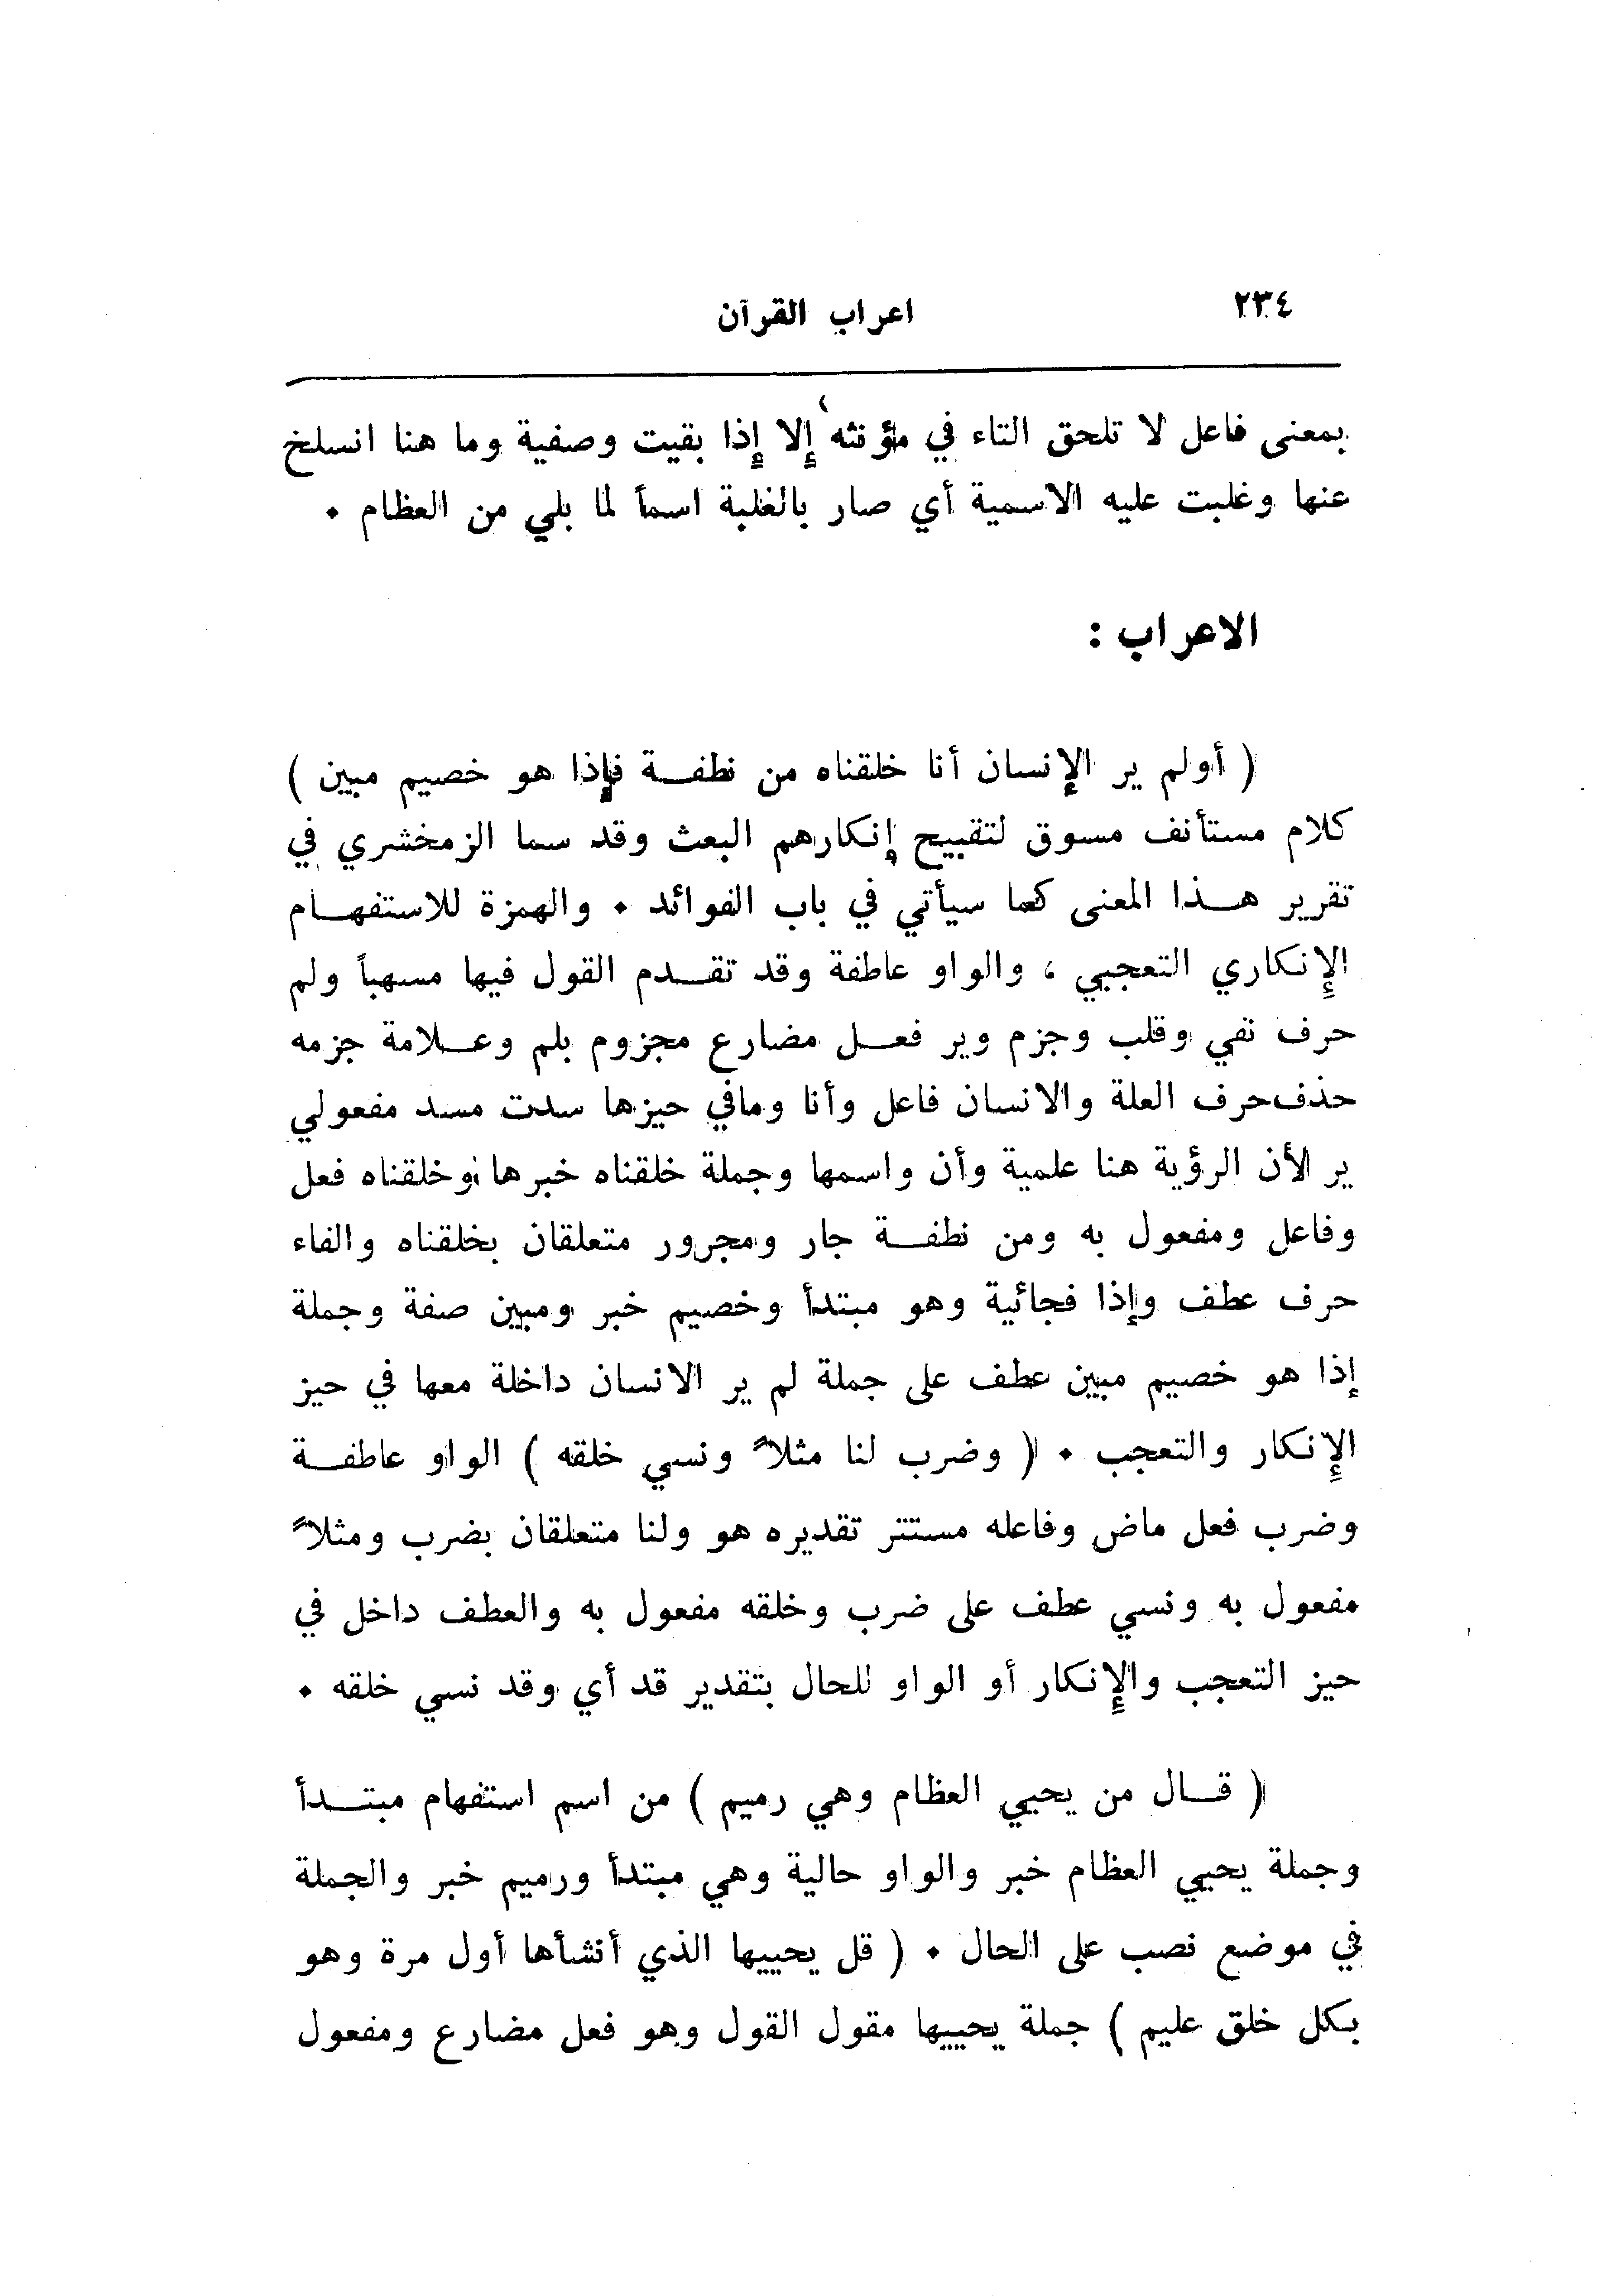 ٢٣٤
اعراب القرآن
بمعنى فاعل لا تلحق التاء في مؤنثه إلا إذا بقيت وصفية وما هنا انسلخ
عنها وغلبت عليه الاسمية أي صار بالغلبة اسماً لما بلي من العظام ٠
الاعراب :
( أولم ير الإنسان أنا خلقناه من نطفة فإذا هو خصيم مبين )
كلام مستأنف مسوق لتقبيح إنكارهم البعث وقد سما الزمخشري في
تقرير هذا المعنى كما سيأتي في باب الفوائد ٠ والهمزة للاستفهام
الإنكاري التعجبي ، والواو عاطفة وقد تقدم القول فيها مسهباً ولم
حرف نفي وقلب وجزم وير فعل مضارع مجزوم بلم وعلامة جزمه
حذف حرف العلة والانسان فاعل وأنا ومافي حيزها سدت مسد مفعولي
ير لأن الرؤية هنا علمية وأن واسمها وجملة خلقناه خبرها وخلقناه فعل
وفاعل ومفعول به ومن نطفة جار ومجرور متعلقان بخلقناه والفاء
حرف عطف وإذا فجائية وهو مبتدأ وخصيم خبر ومبين صفة وجملة
إذا هو خصيم مبين عطف على جملة لم ير الانسان داخلة معها في حيز
الإنكار والتعجب ٠ ( وضرب لنا مثلاً ونسي خلقه ) الواو عاطفة
وضرب فعل ماض وفاعله مستتر تقديره هو ولنا متعلقان بضرب ومثلاً
مفعول به ونسي عطف على ضرب وخلقه مفعول به والعطف داخل في
حيز التعجب والإنكار أو الواو للحال بتقدير قد أي وقد نسي خلقه ٠
( قال من يحيي العظام وهي رميم ) من اسم استفهام مبتدأ
وجملة يحيي العظام خبر والواو حالية وهي مبتدأ ورميم خبر والجملة
في موضع نصب على الحال ٠ ( قل يحييها الذي أنشأها أول مرة وهو
بكل خلق عليم ) جملة يحييها مقول القول وهو فعل مضارع ومفعول